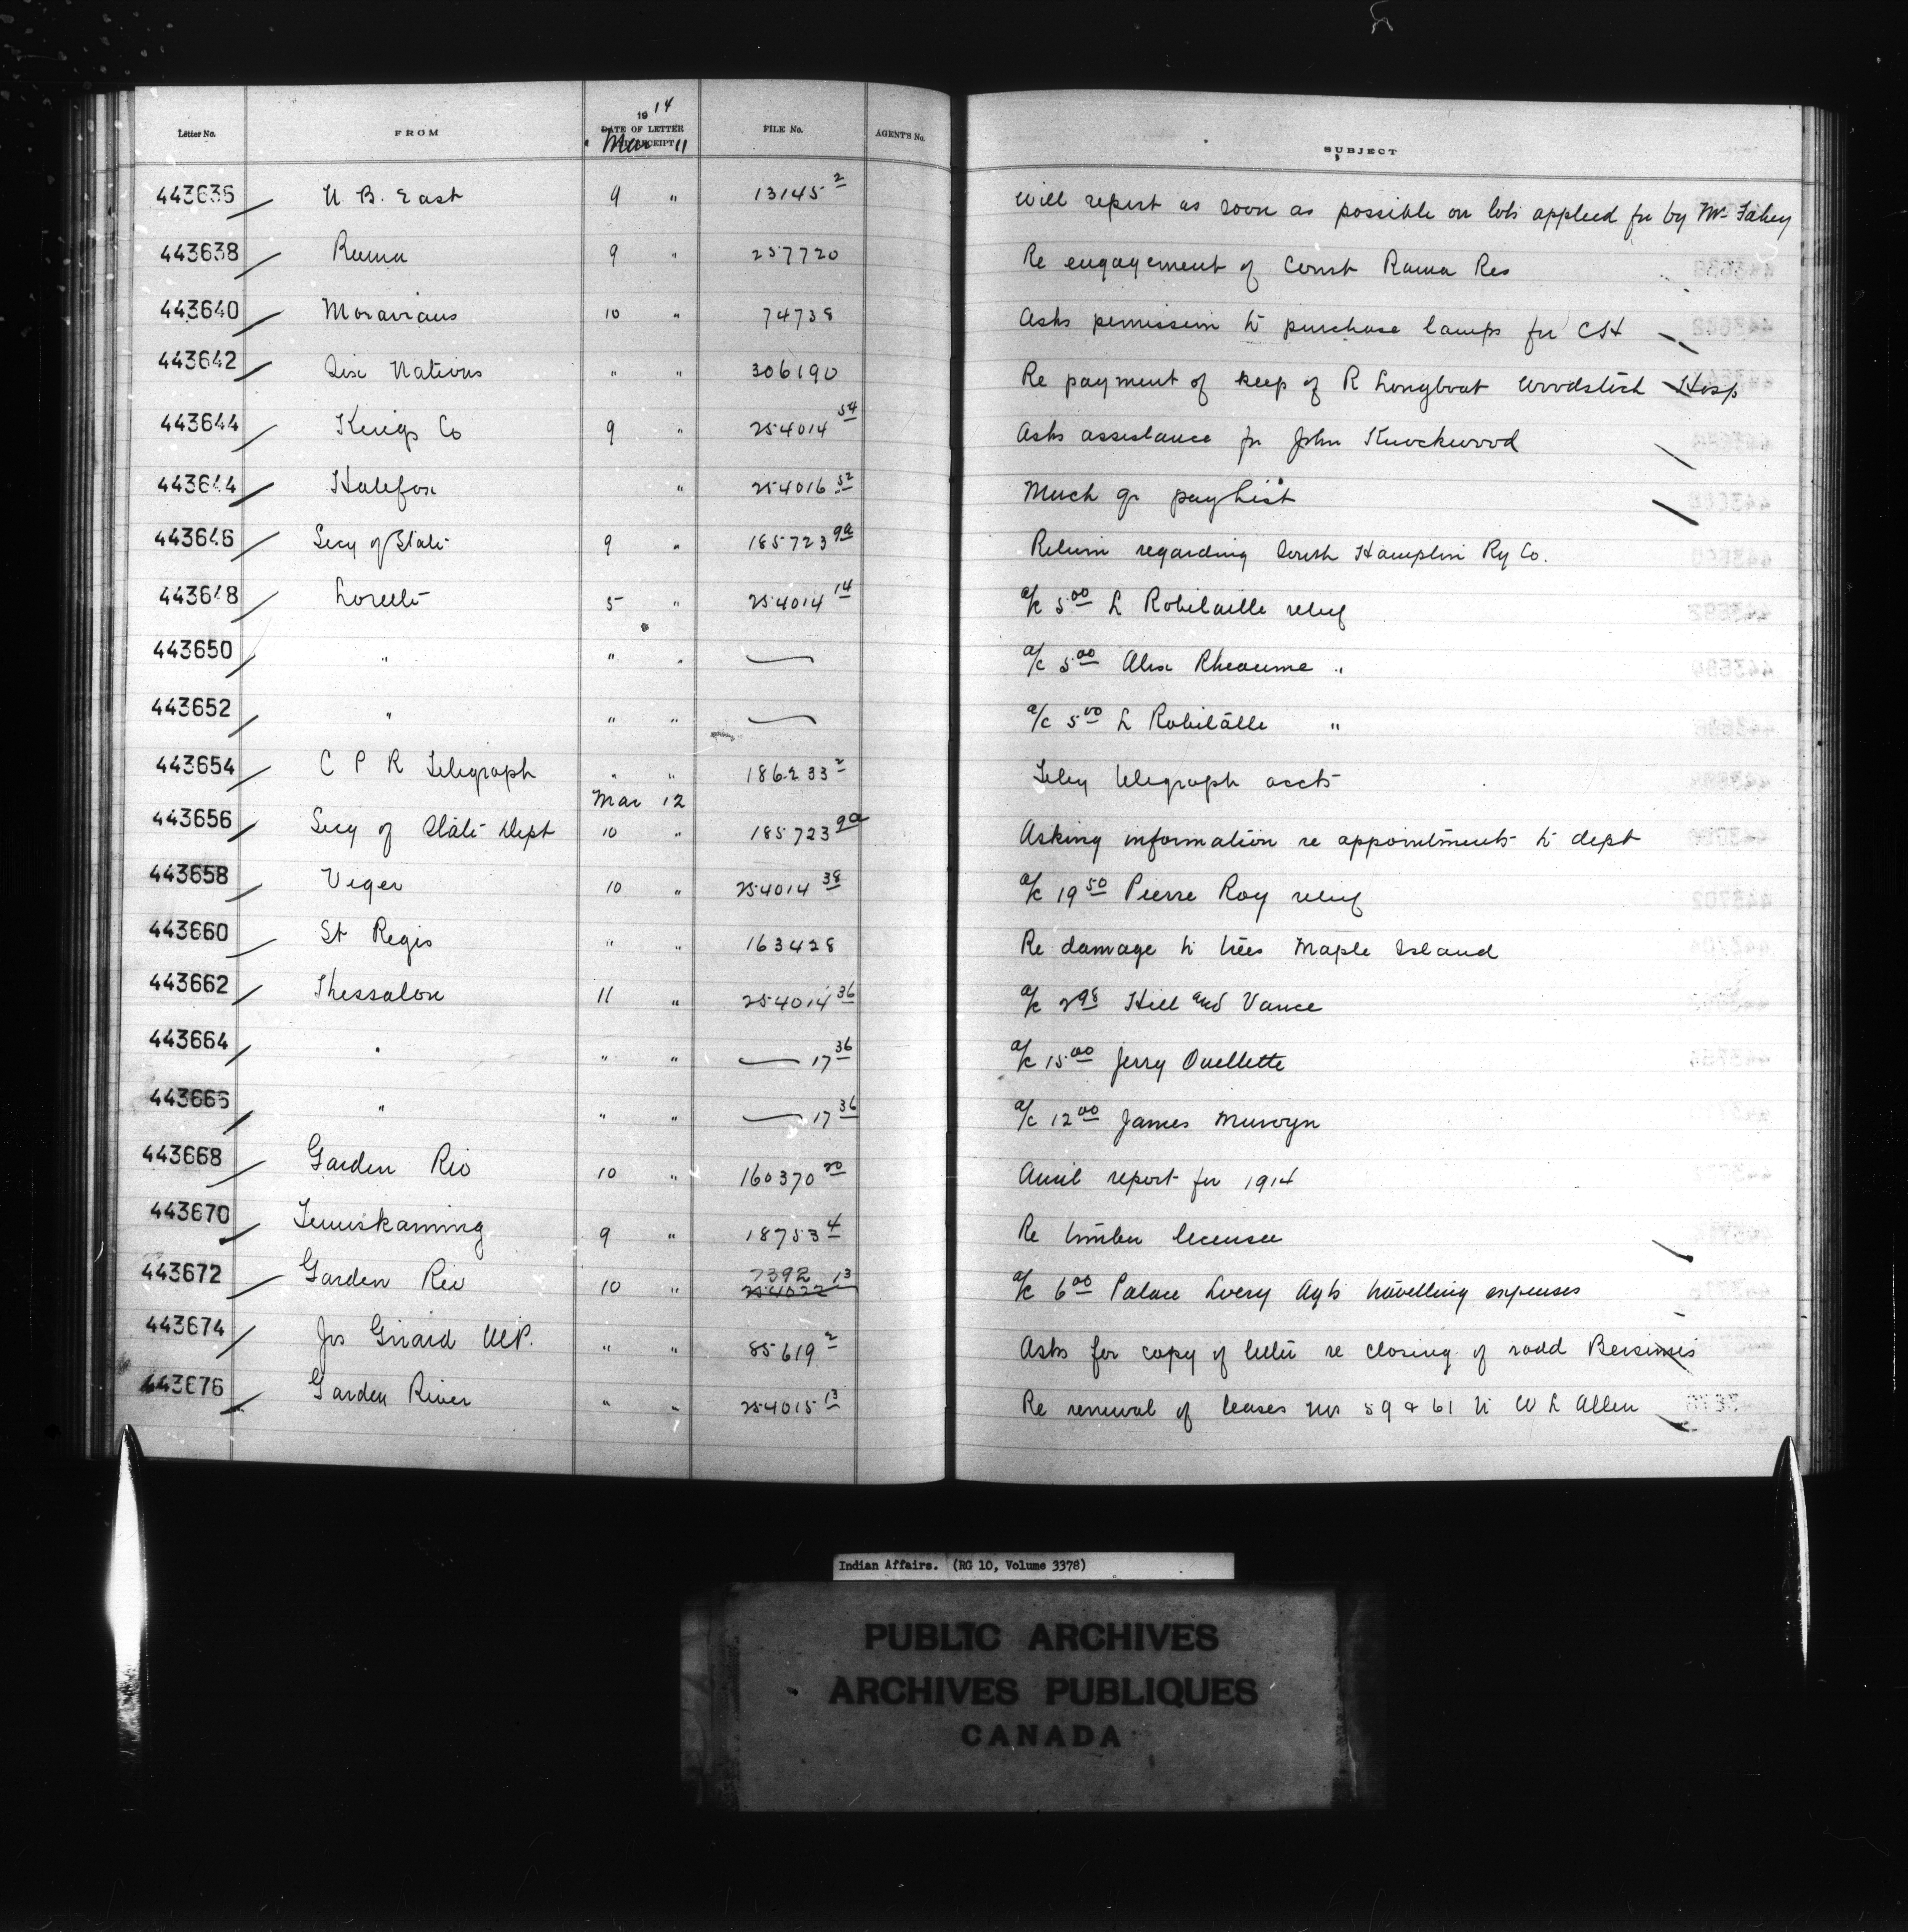 19 14
Letter No. FROM DATE OF LETTER RECEIPT FILE No. AGENT'S No. SUBJECT
Mar 11
443636 N B. East 9 " 13145 2 Will report as soon as possible on lots applied for by Mr Fahey
443638 Rama 9 " 257720 Re engagement of Const Rama Res
443640 Moravians 10 " 74738 Asks permission to purchase lamps for CH
443642 Six Nations " " 306190 Re payment of keep of R Longboat Woodstock Hosp
443644 Kings Co 9 " 254014 54 Asks assistance for John Knockwood
443644 Halifax " 254016 52 March qr pay list
443646 Secy of State 9 " 185723 9a Return regarding South Hampton Ry Co.
443648 Lorette 5 " 254014 14 a/c 5 00 L Robitaille relief
443650 " " " a/c 5 00 Alex Rheaume "
443652 " " " a/c 5 00 L Robitalle "
443654 C P R Telegraph " "186233 2 Feby telegraph accts
Mar 12
443656 Secy of State Dept 10 " 185723 9a Asking information re appointments to dept
443658 Viger 10 " 254014 38 a/c 19 50 Pierre Roy relief
443660 St Regis " " 163428 Re damage to trees Maple Island
443662 Thessalon 11 " 254014 36 a/c 2 98 Hill and Vance
443664 " " " 17 36 a/c 15 00 Jerry Ouellette
443666 " " " 17 36 a/c 12 00 James
443668 Garden Riv 10 " 160370 20 Annl report for 1914
443670 Temiskaming 9 " 18753 4 Re timber licenses
443672 Garden Riv 10 " 7392 13 254022 a/c 6 00 Palace Livery Agts travelling expenses
443674 Jos Girard M.P. " " 85619 2 Asks for copy of letter re closing of road Bersimis
443676 Garden River " " 254015 13 Re renewal of leases nos 59 & 61 to W L Allen
Indian Affairs. (RG 10, Volume 3378)
PUBLIC ARCHIVES
ARCHIVES PUBLIQUES
CANADA